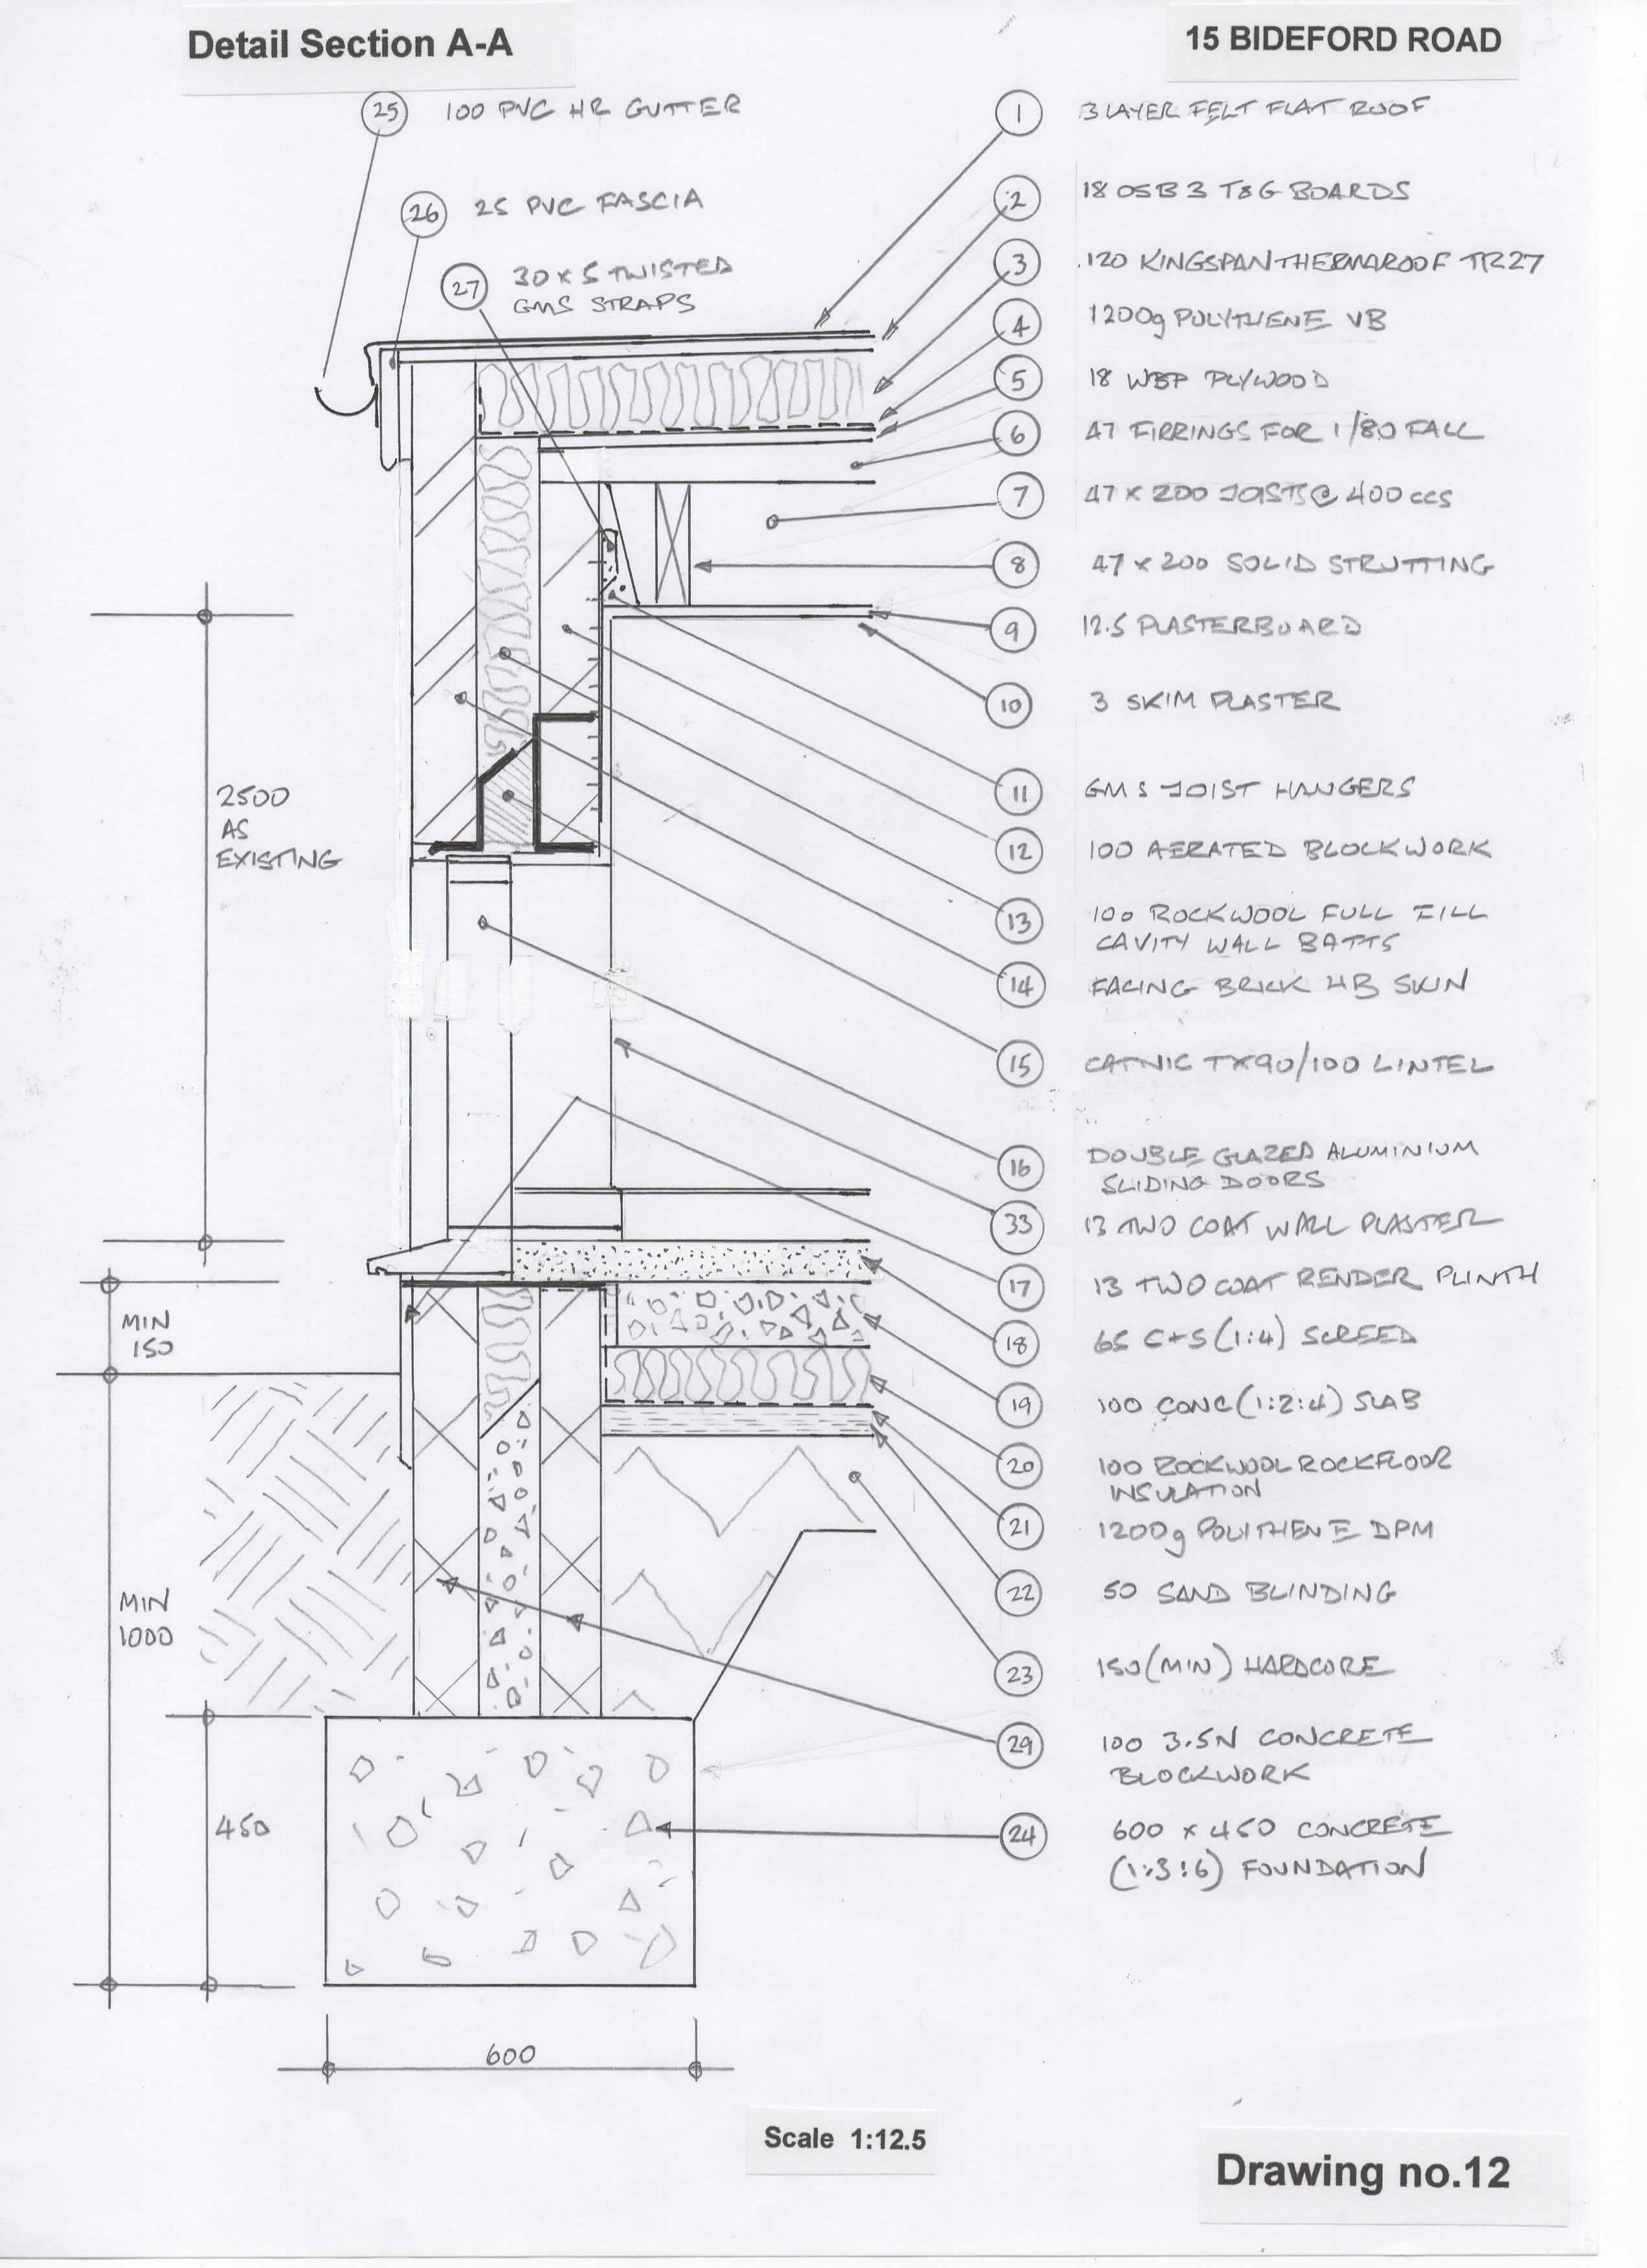 Detail Section A-A
15 BIDEFORD ROAD
25 100 PVC HR GUTTER
26 25 PVC FASCIA
27 30 x 5 TWISTED
GMS STRAPS
1 3 LAYER FELT FLAT ROOF
2 18 OSB 3 T&G BOARDS
3 120 KINGSPAN THERMAROOF TR27
4 1200g POLYTHENE VB
5 18 WBP PLYWOOD
6 47 FIRRINGS FOR 1/80 FALL
7 47 x 200 JOISTS @ 400 ccs
8 47 x 200 SOLID STRUTTING
9 12.5 PLASTERBOARD
10 3 SKIM PLASTER
11 GMS JOIST HANGERS
12 100 AERATED BLOCKWORK
13 100 ROCKWOOL FULL FILL
CAVITY WALL BATTS
14 FACING BRICK HB SKIN
15 CATNIC TX90/100 LINTEL
16 DOUBLE GLAZED ALUMINIUM
SLIDING DOORS
33 13 TWO COAT WALL PLASTER
17 13 TWO COAT RENDER PLINTH
18 65 C+S (1:4) SCREED
19 100 CONC (1:2:4) SLAB
20 100 ROCKWOOL ROCKFLOOR
INSULATION
21 1200g POLYTHENE DPM
22 50 SAND BLINDING
23 150 (MIN) HARDCORE
29 100 3.5N CONCRETE
BLOCKWORK
24 600 x 450 CONCRETE
(1:3:6) FOUNDATION
2500
AS
EXISTING
MIN
150
MIN
1000
450
600
Scale 1:12.5
Drawing no.12